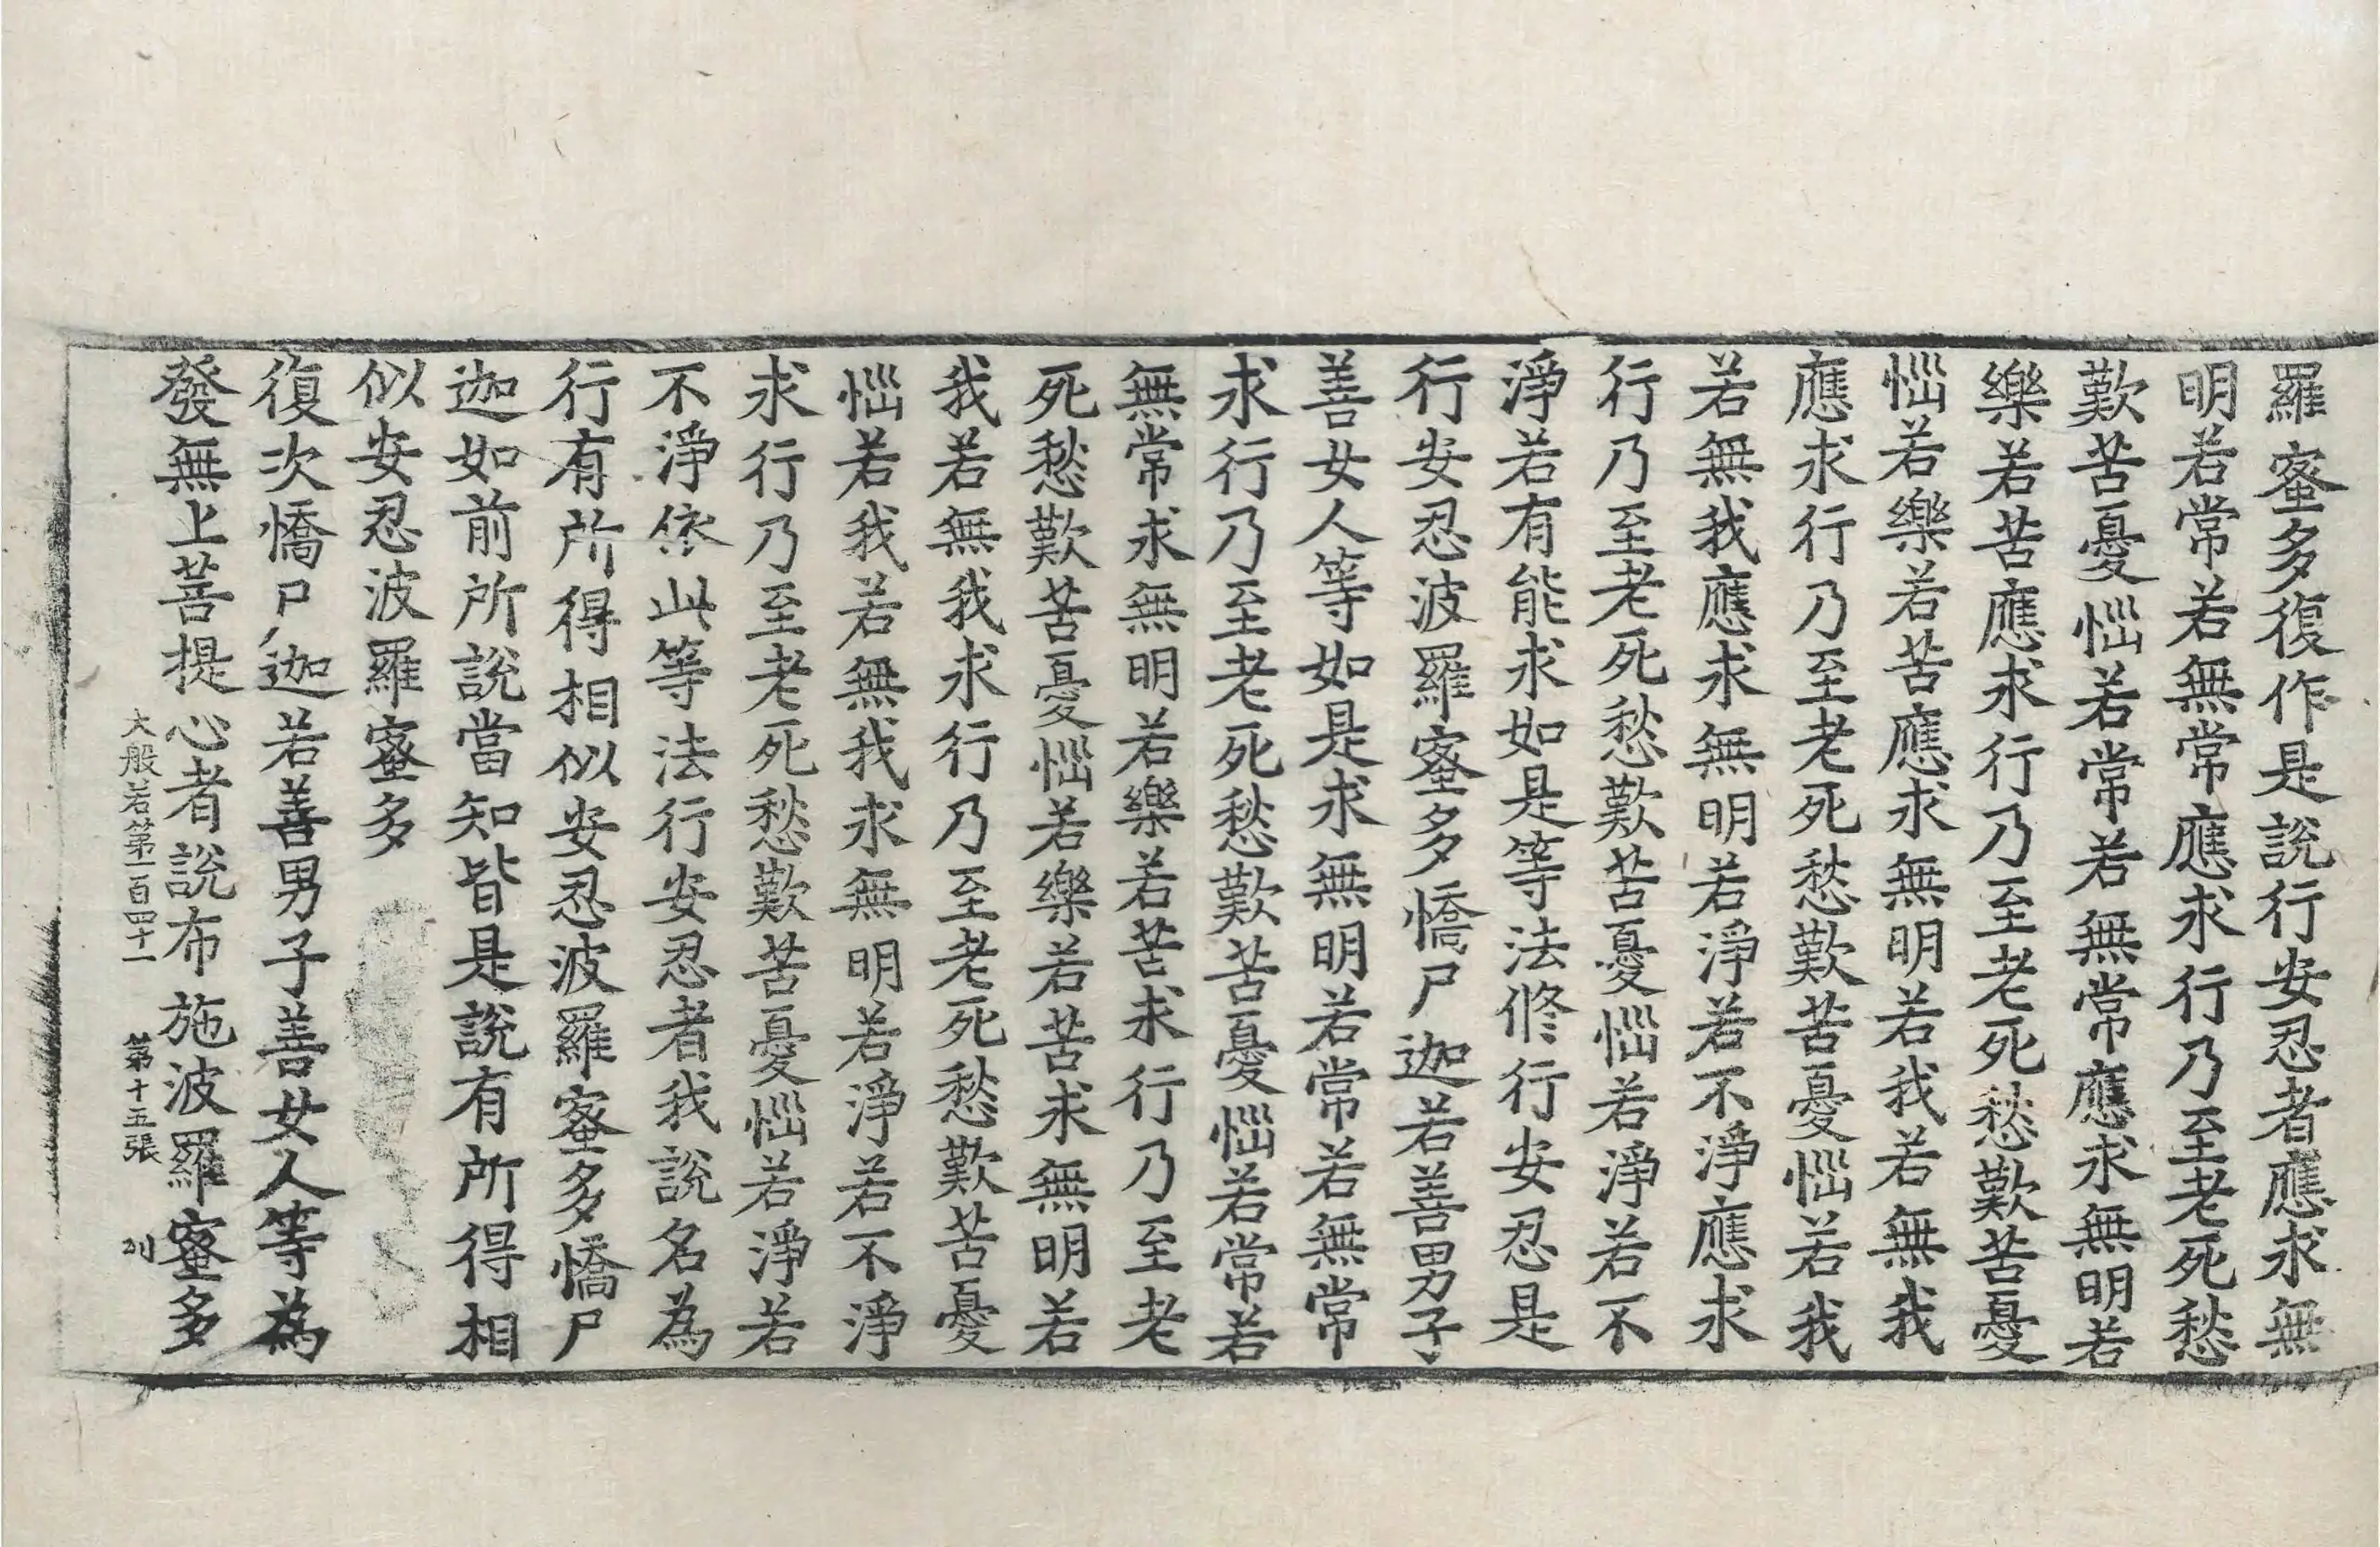 羅蜜多復作是說行安忍者應求無
明若常若無常應求行乃至老死愁
歎苦憂惱若常若無常應求無明若
樂若苦應求行乃至老死愁歎苦憂
惱若樂若苦應求無明若我若無我
應求行乃至老死愁歎苦憂惱若我
若無我應求無明若淨若不淨應求
行乃至老死愁歎苦憂惱若淨若不
淨若有能求如是等法修行安忍是
行安忍波羅蜜多憍尸迦若善男子
善女人等如是求無明若常若無常
求行乃至老死愁歎苦憂惱若常若
無常求無明若樂若苦求行乃至老
死愁歎苦憂惱若樂若苦求無明若
我若無我求行乃至老死愁歎苦憂
惱若我若無我求無明若淨若不淨
求行乃至老死愁歎苦憂惱若淨若
不淨依此等法行安忍者我說名為
行有所得相似安忍波羅蜜多憍尸
迦如前所說當知皆是說有所得相
似安忍波羅蜜多
復次憍尸迦若善男子善女人等為
發無上菩提心者說布施波羅蜜多
大般若第一百四十一 第十五張